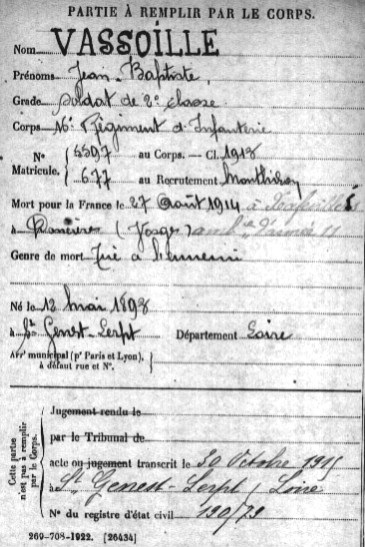 PARTIE À REMPLIR PAR LE CORPS.
Nom VASSOILLE
Prénoms Jean-Baptiste
Grade Soldat de 2e classe
Corps 16e Régiment d'Infanterie
N° Matricule. 5597 au Corps. — Cl. 1918
677 au Recrutement Montbrison
Mort pour la France le 27 Août 1914 à
à (Vosges) amb
Genre de mort Tué à l'ennemi
Né le 12 mai 1898
à St Genest-Lerpt Département Loire
Arrt municipal (pr Paris et Lyon), à défaut rue et N°.
Cette partie n'est pas à remplir par le Corps.
Jugement rendu le
par le Tribunal de
acte ou jugement transcrit le 30 Octobre 191
à St Genest-Lerpt / Loire
N° du registre d'état civil 190/79
269-708-1922. [26434]